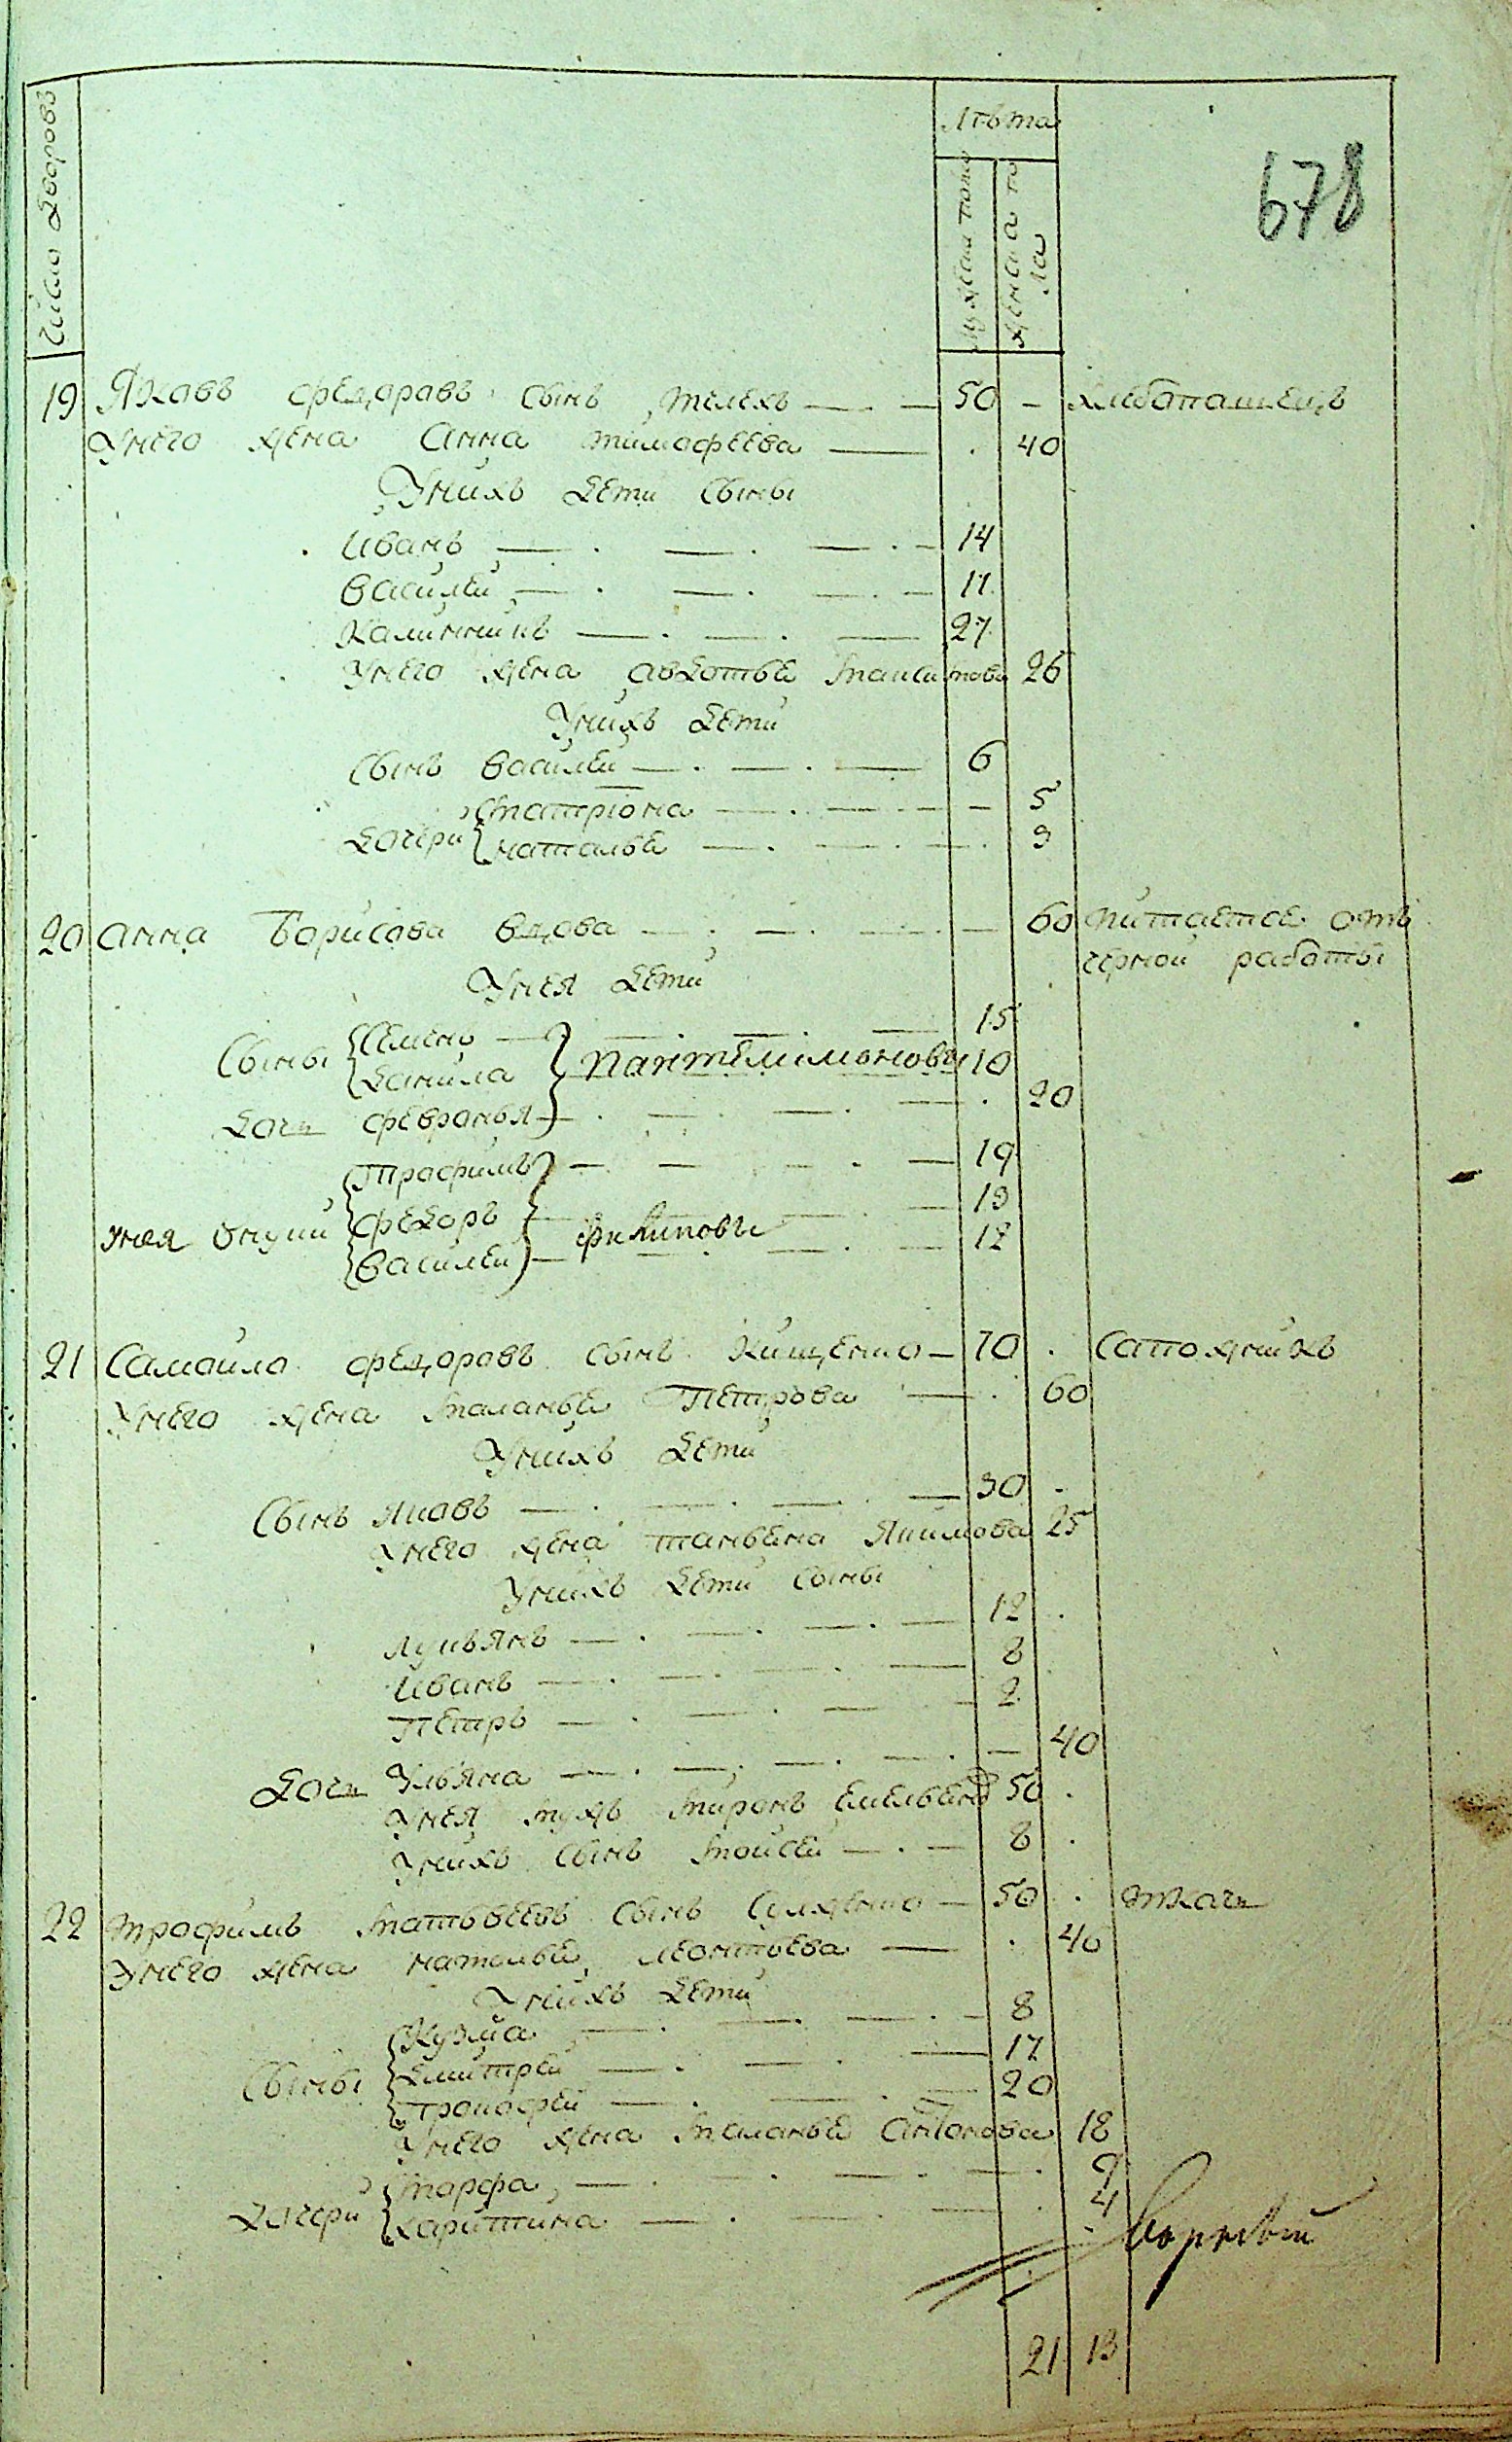 678
Число дворовъ
Лѣта
мужска пола
женска пола
19 Яковъ федоровъ сынъ телехъ 50 – хлебапашецъ
Унего жена анна тимофеева 40
Унихъ дети сыны
иванъ 14
василеи 11
Калинникъ 27
Унего жена авдотья 26
Унихъ дети
Сынъ василеи 6
дочери матриона 5
наталья 3
20 анна Борисова вдова 60 питается отъ
черной работы
Унея дети
Сыны Семенъ 15
данила Пантелимоновы 10
дочь февронья 20
трофимъ 19
Унея внуки федоръ филиповы 13
василеи 12
21 Самоило федоровъ сынъ Кищенко 70 Сапожникъ
Унего жена маланья Петрова 60
Унихъ дети
Сынъ Яковъ 30
Унего жена татьяна Якимова 25
Унихъ дети сыны
лукьянъ 12
иванъ 8
Петръ 2
дочь Ульяна 40
Унея мужъ миронъ емельянов 50
Унихъ сынъ моисеи 8
22 трофимъ матвеевъ сынъ 50 ткачь
Унего жена наталья леонтьева 40
Унихъ дети
Кузма 8
Сыны дмитреи 17
прокофеи 20
Унего жена маланья антонова 18
дочери марфа 9
харитина 4
21 13